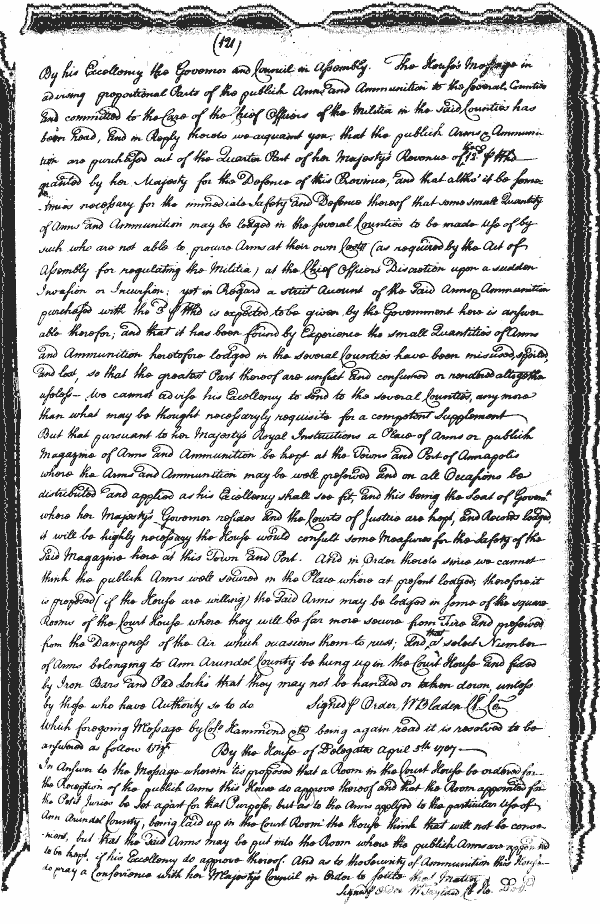 (121)
By his Excellency the Governor and Council in Assembly. The House's Message in
advising proportional Parts of the publick Arms and Ammunition to the several Counties
and committed to the Care of the Chief Officers of the Militia in the said Counties has
been read, and in Reply thereto we acquaint you, that the publick Arms & Ammuni
tion are purchased out of the Quarter Part of her Majesty's Revenue of
granted by her Majesty for the Defence of this Province, and that altho' it be some
times necessary for the immediate Safety and Defence thereof that some small Quantity
of Arms and Ammunition may be lodged in the several Counties to be made use of by
such who are not able to procure Arms at their own Costs (as required by the Act of
Assembly for regulating the Militia) at the Chief Officers Discretion upon a sudden
Invasion or Incursion; yet in Regard a strict Account of the said Arms & Ammunition
purchased with the is expected to be given by the Government here is answer
able therefor; and that it has been found by Experience the small Quantities of Arms
and Ammunition heretofore lodged in the several Counties have been misused, spoiled,
and lost, so that the greatest Part thereof are unfixt and consumed or rendered altogether
useless - we cannot advise his Excellency to send to the several Counties, any more
than what may be thought necessaryly requisite for a competent Supplement
But that pursuant to her Majestys Royal Instructions a Place of Arms or publick
Magazine of Arms and Ammunition be kept at the Town and Port of Annapolis
where the Arms and Ammunition may be well preserved and on all Occasions be
distributed and applied as his Excellency shall see fit, and this being the Seat of Govern.t
where her Majesty's Governor resides and the Courts of Justice are kept, and Records lodged,
it will be highly necessary the House would consult some Measures for the Safety of the
said Magazine here at this Town and Port. And in Order thereto since we cannot
think the publick Arms well secured in the Place where at present lodged, therefore it
is proposed (if the House are willing) the said Arms may be lodged in some of the square
Rooms of the Court House where they will be far more secure from Fire and preserved
from the Dampness of the Air which occasions them to rust; and that a select Number
of Arms belonging to Ann Arundel County be hung up in the Court House and fixed
by Iron Bars and Pad Locks that they may not be handed or taken down, unless
by those who have Authority so to do Signed p Order, W Bladen Cl. Co.
Which foregoing Message by Col.o Hammond etc being again read it is resolved to be
answered as follow Viz.t By the House of Delegates April 5th 1707
In Answer to the Message wherein 'tis proposed that a Room in the Court House be ordered for
the Reception of the publick Arms this House do approve thereof and that the Room appointed for
the Petit Juries be set apart for that Purpose, but as to the Arms applyed to the particular Use of
Ann Arundel County, being laid up in the Court Room the House think that will not be conve
nient, but that the said Arms may be put into the Room where the publick Arms are appointed
to be kept, if his Excellency do approve thereof. And as to the Security of Ammunition this House
do pray a Conference with her Majesty's Council in Order to settle that Matter
Signed p Order W Taylard Cl. Ho. Del.